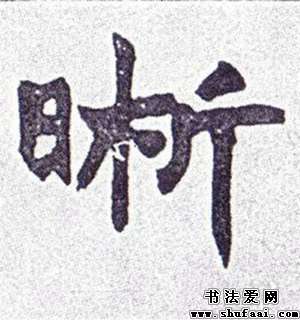 晰
书法爱网
www.shufaai.com